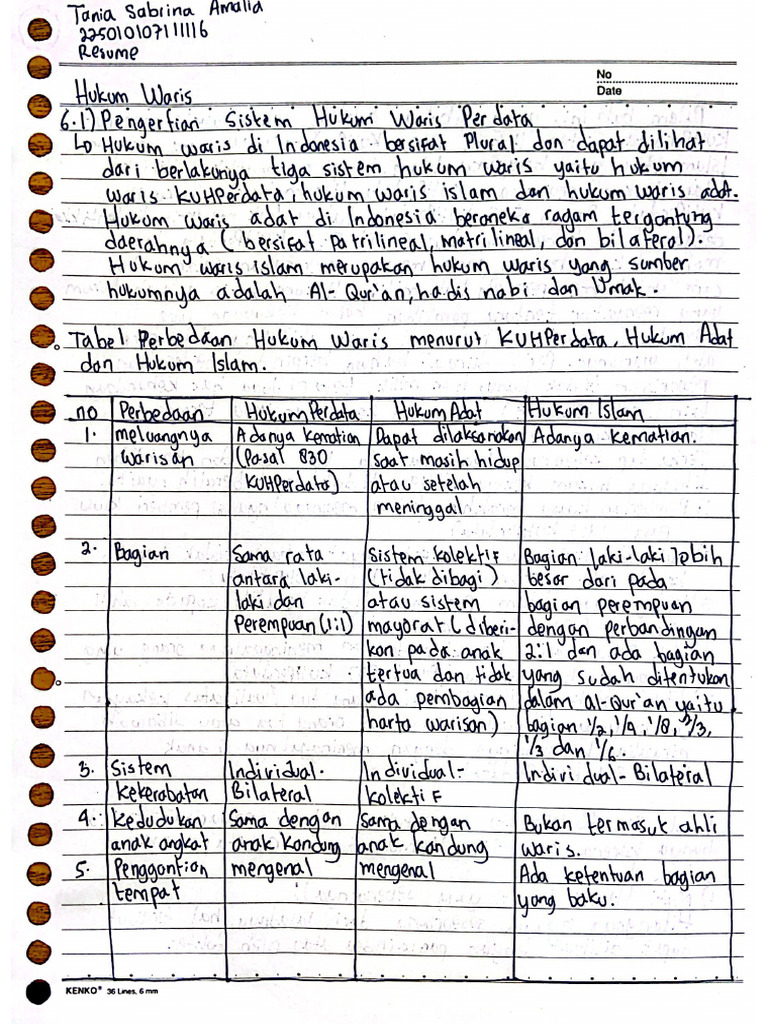 Tania Sabrina Amalia
225010107111116
Resume
No
Date
Hukum Waris
6.1) Pengertian Sistem Hukum Waris Perdata
↳ Hukum waris di Indonesia bersifat Plural dan dapat dilihat
dari berlakunya tiga sistem hukum waris yaitu hukum
waris KUHPerdata, hukum waris islam dan hukum waris adat.
Hukum waris adat di Indonesia beraneka ragam tergantung
daerahnya (bersifat patrilineal, matrilineal, dan bilateral).
Hukum waris islam merupakan hukum waris yang sumber
hukumnya adalah Al-Qur'an, hadis nabi dan Umak.
Tabel Perbedaan Hukum Waris menurut KUHPerdata, Hukum Adat
dan Hukum Islam.
no Perbedaan Hukum Perdata Hukum Adat Hukum Islam
1. meluangnya Adanya kematian Dapat dilaksanakan Adanya kematian.
warisan (Pasal 830 saat masih hidup
KUHPerdata) atau setelah
meninggal
2. Bagian Sama rata Sistem kolektif Bagian laki-laki lebih
antara laki- (tidak dibagi) besar dari pada
laki dan atau sistem bagian perempuan
Perempuan (1:1) mayorat (diberi- dengan perbandingan
kan pada anak 2:1 dan ada bagian
tertua dan tidak yang sudah ditentukan
ada pembagian dalam al-Qur'an yaitu
harta warisan) bagian 1/2, 1/4, 1/8, 2/3,
1/3 dan 1/6.
3. Sistem Individual- Individual- Individual-Bilateral
kekerabatan Bilateral kolektif
4. kedudukan Sama dengan sama dengan Bukan termasuk ahli
anak angkat anak kandung anak kandung waris.
5. Penggantian mengenal mengenal Ada ketentuan bagian
tempat yang baku.
KENKO® 36 Lines, 6 mm